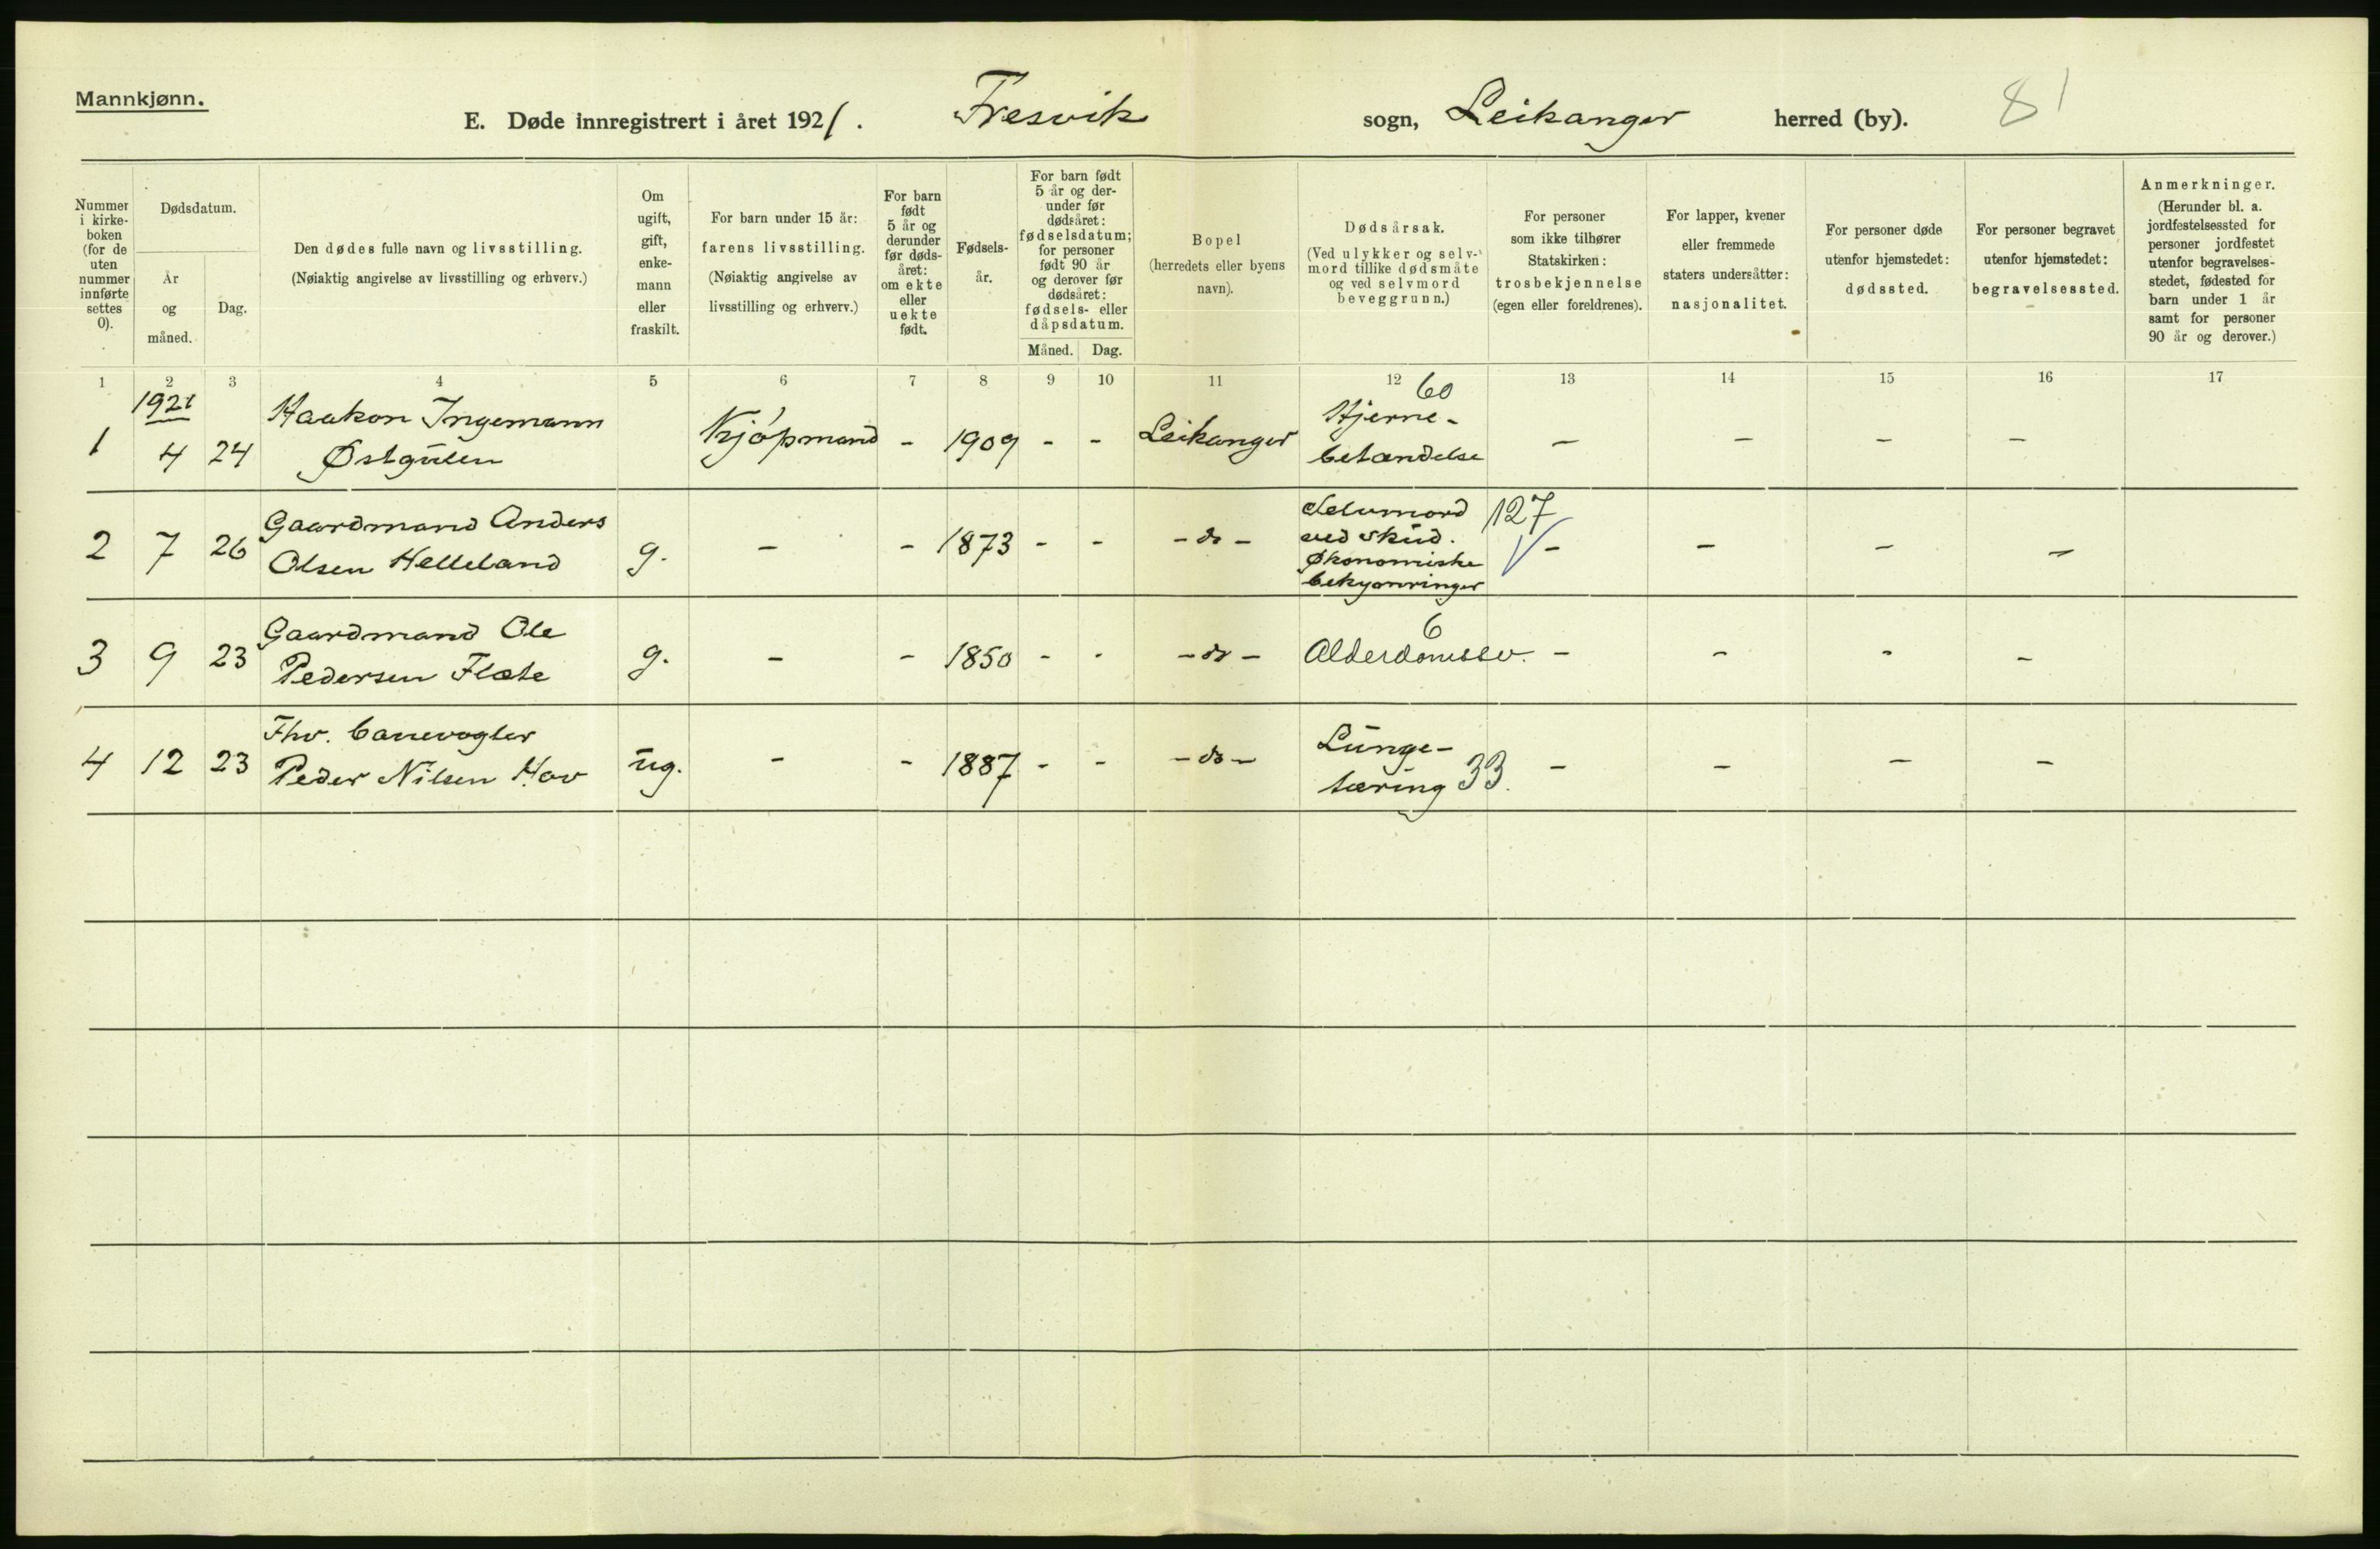 Mannkjønn.
E. Døde innregistrert i året 1921. Fresvik sogn, Leikanger herred (by). 81
Nummer i kirke- boken (for de uten nummer innførte settes 0).
Dødsdatum.
År og måned.
Dag.
Den dødes fulle navn og livsstilling.
(Nøiaktig angivelse av livsstilling og erhverv.)
Om ugift, gift, enke- mann eller fraskilt.
For barn under 15 år:
farens livsstilling.
(Nøiaktig angivelse av
livsstilling og erhverv.)
For barn født 5 år og derunder før døds- året: om ekte eller uekte født.
Fødsels- år.
For barn født 5 år og der- under før dødsåret: fødselsdatum; for personer født 90 år og derover før dødsåret: fødsels- eller dåpsdatum.
Måned. Dag.
Bopel
(herredets eller byens
navn).
Dødsårsak.
(Ved ulykker og selv-
mord tillike dødsmåte
og ved selvmord
beveggrunn.)
For personer
som ikke tilhører
Statskirken:
trosbekjennelse
(egen eller foreldrenes).
For lapper, kvener
eller fremmede
staters undersåtter:
nasjonalitet.
For personer døde
utenfor hjemstedet:
dødssted.
For personer begravet
utenfor hjemstedet:
begravelsessted.
Anmerkninger.
(Herunder bl. a.
jordfestelsessted for
personer jordfestet
utenfor begravelses-
stedet, fødested for
barn under 1 år
samt for personer
90 år og derover.)
1 2 3 4 5 6 7 8 9 10 11 12 13 14 15 16 17
1921 Haakon Ingemann Hjerne- 60
1 4 24 Østgulen Kjøpmand - 1909 - - Leikanger betændelse - - - -
Gaardmand Anders Selvmord 127
2 7 26 Olsen Helleland g. - - 1873 - - - do - ved skud. - - - -
Økonomiske
bekymringer
Gaardmand Ole 6
3 9 23 Pedersen Flæte g. - - 1850 - - - do - Alderdomssv. - - - -
Fhv.
4 12 23 Peder Nilsen Hov ug. - - 1887 - - - do - Lunge- - - - -
tæring 33.